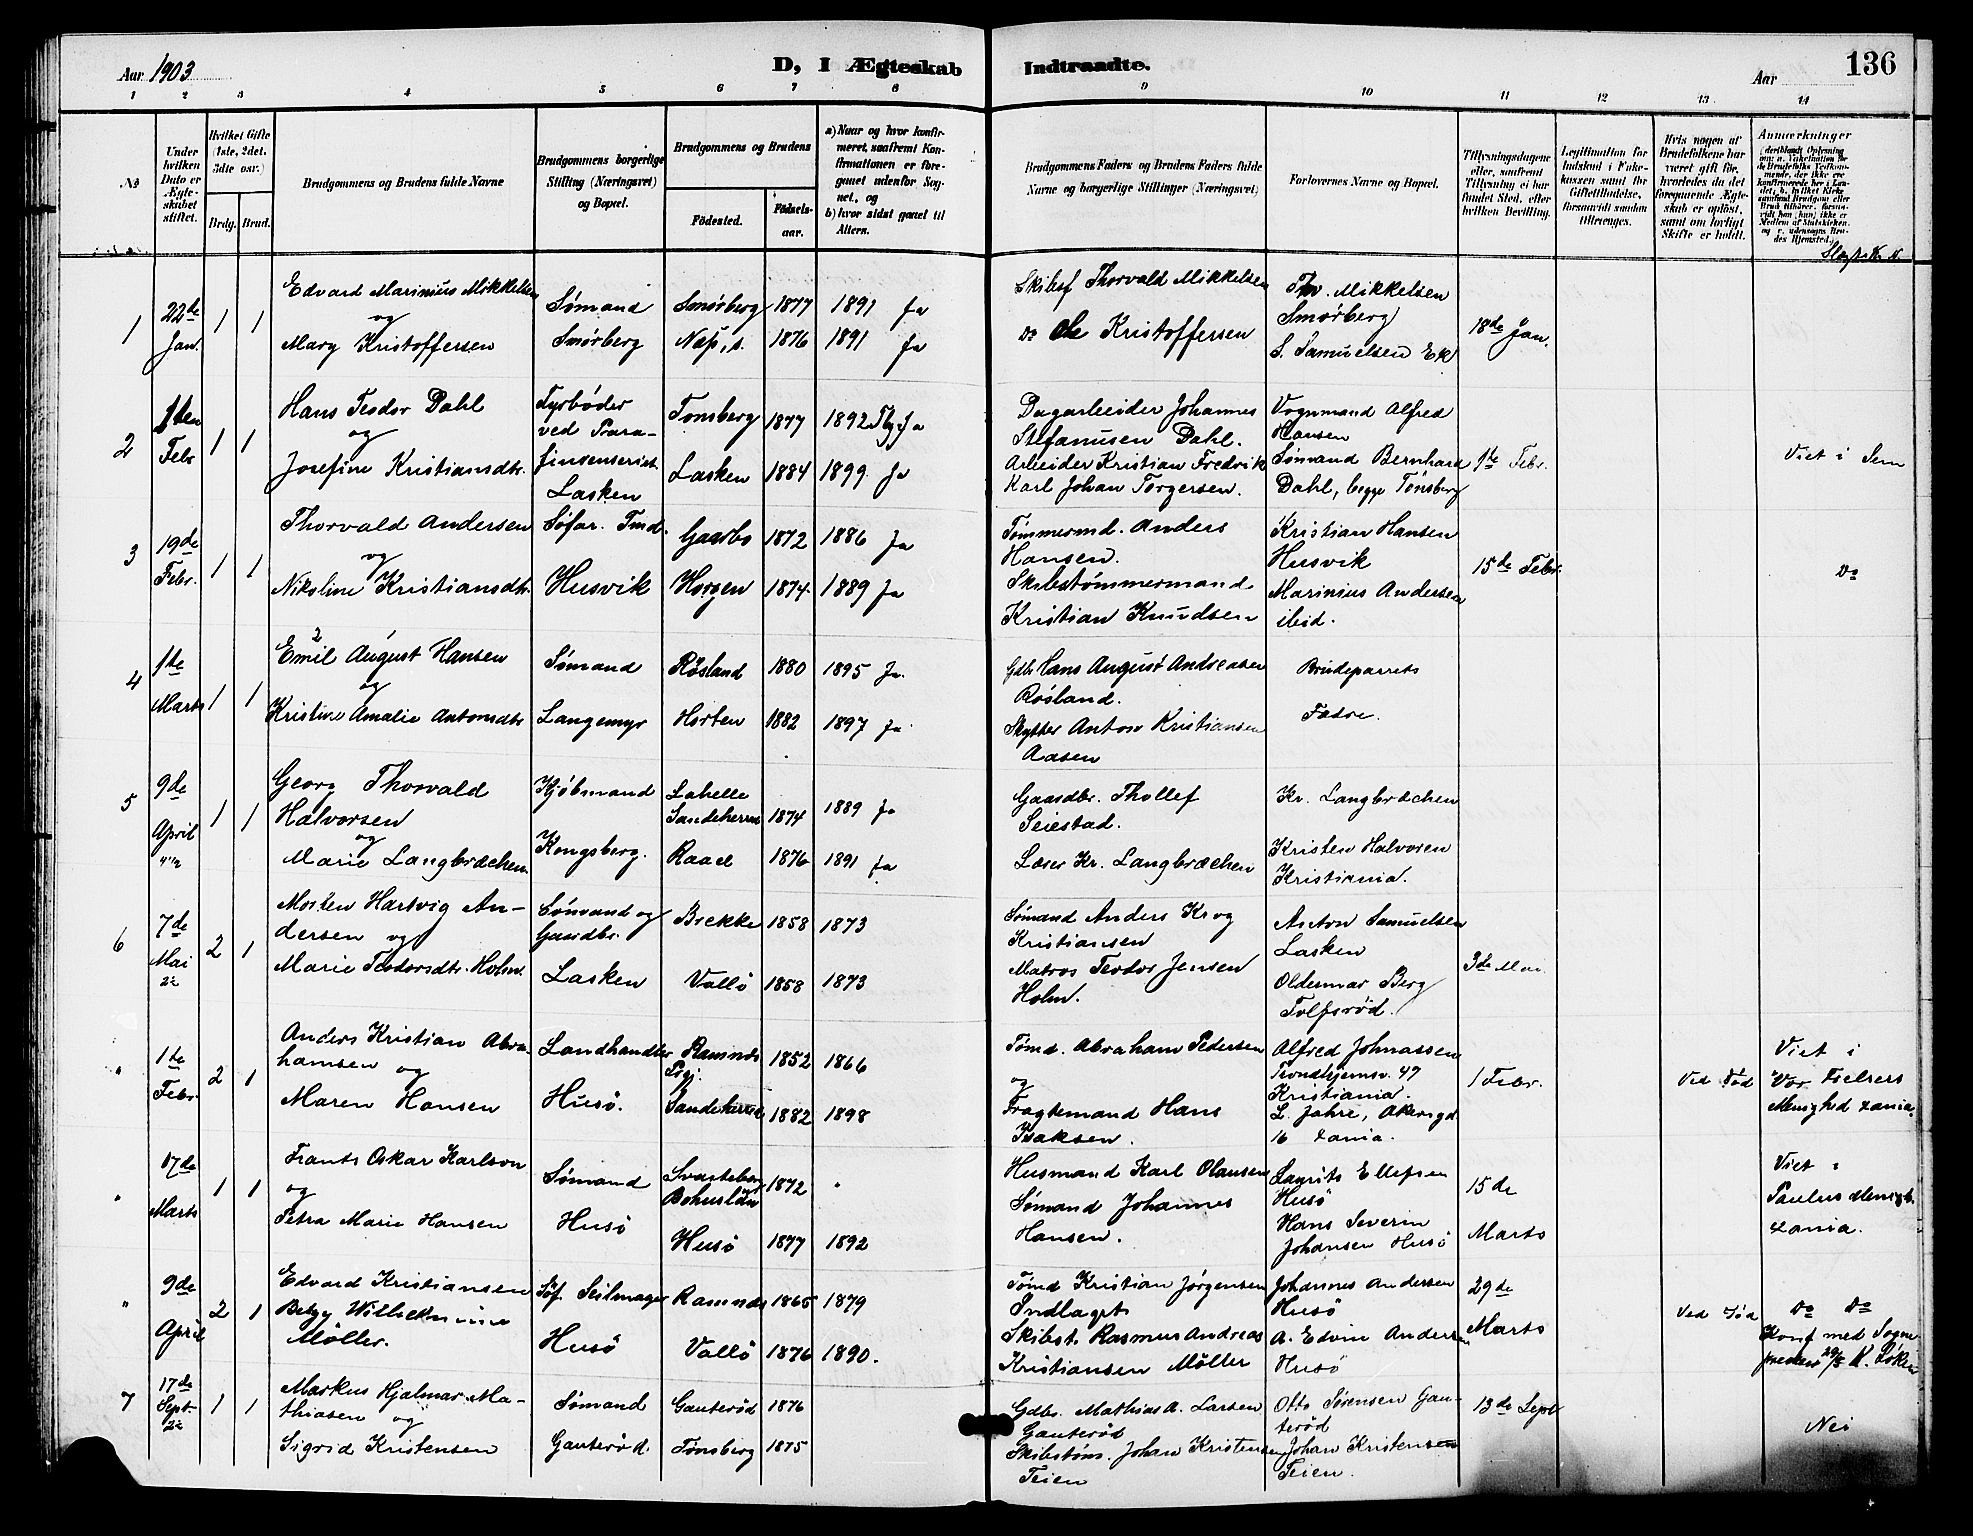 Aar 1903
D, I Ægteskab Indtraadte.
Aar
136
1 2 3 4 5 6 7 8 9 10 11 12 13 14
No
Under hvilken Dato er Ægteskabet stiftet.
Hvilket Gifte (1ste, 2det, 3die osv.)
Brdg. Brud.
Brudgommens og Brudens fulde Navne
Brudgommens borgerlige Stilling (Næringsvei) og Bopæl.
Brudgommens og Brudens
Fødested.
Fødselsaar.
a) Naar og hvor konfirmeret, saafremt Konfirmationen er foregaaet udenfor Sognet, og
b) hvor sidst gaaet til Alters.
Brudgommens Faders og Brudens Faders fulde Navne og borgerlige Stillinger (Næringsvei)
Forlovernes Navne og Bopæl.
Tillysningsdagene eller, saafremt Tillysning ei har fundet Sted, efter hvilken Bevilling.
Legitimation for Indskud i Enkekassen samt for Giftetilladelse, forsaavidt saadan tiltrænges.
Hvis nogen af Brudefolkene har været gift før, hvorledes da det foregaaende Ægteskab er opløst, samt om lovligt Skifte er holdt.
Anmærkninger
1
22de Jan.
1 1
Edvard Marinius Mikkelsen
og
Mary Kristoffersen
Sømand
Smørberg
Smørberg 1877 1891 Ja
Næs, 1876 1891 Ja
Skibsf Thorvald Mikkelsen
Do Ole Kristoffersen
Thv. Mikkelsen
Smørberg
S. Samuelsen Ek
18de Jan.
2
1ten Febr
1 1
Hans Teodor Dahl
og
Josefine Kristiansdtr.
Fyrbøder
ved Para-
finsenseriet
Lasken
Tønsberg 1877 1892 Tbg. Ja
Lasken 1884 1899 Ja
Dagarbeider Johannes
Stefanusen Dahl.
Arbeider Kristian Fredrik
Karl Johan Torgersen.
Vognmand Alfred
Hansen
Sømand Bernhard
Dahl, begge Tønsberg
1ste Febr.
Viet i Sem
3
19de Febr.
1 1
Thorvald Andersen
og
Nikoline Kristiansdtr.
Søfar. Tmd.
Husvik
Gaarbo 1872 1886 Ja
Horgen 1874 1889 Ja
Tømmermd. Anders
Hansen.
Skibstømmermand
Kristian Knudsen
Kristian Hansen
Husvik
Marinius Andersen
ibid.
15de Febr.
Do
4
1ste Marts
1 1
Emil August Hansen
og
Kristine Amalie Antonsdtr
Sømand
Langemyr
Røsland 1880 1895 Ja.
Horten 1882 1897 Ja
Gdb. Hans August Andreasen
Røsland.
Skytter Anton Kristiansen
Aasen
Brudeparrets
Fædre.
5
9de April
1 1
Georg Thorvald
Halvorsen
og
Marie Langbrækken
Kjøbmand
Kongsberg.
Lahelle
Sandeherred 1874 1889 Ja
Raael 1876 1891 Ja
Gaardbr. Thollef
Seiestad.
Læser Kr. Langbrækken
Kr. Langbrækken
Kristen Halvorsen
Kristiania.
6
7de Mai
2 1
Morten Hartvig An-
dersen og
Marie Teodorsdtr. Holm.
Sømand og
Gaardbr.
Lasken
Brekke 1858 1873
Vallø 1858 1873
Sømand Anders Krog
Kristiansen
Matros Teodor Jensen
Holm.
Anton Samuelsen
Lasken
Oldermar Berg
Tolfsrød.
3de Mai
"
1ste Febr.
2 1
Anders Kristian Abra-
hamsen og
Maren Hansen
Landhandler
Husø.
Ramnæs
Prgj. 1852 1866
Sandeherred 1882 1898
Tømd. Abraham Pedersen
og
Fragtemand Hans
Isaksen.
Alfred Johnassen
Trondhjemsv. 47
Kristiania.
L. Jahre, Akersgd
16 Xania.
1 Febr.
Ved Død
Viet i
Vor Frelsers
Menighed Xania.
"
17de Marts
1 1
Frants Oskar Karlson
og
Petra Marie Hansen
Sømand
Husø
Svarteborg
Bohuslän 1872 "
Husø 1877 1892
Husmand Karl Olausen
Sømand Johannes
Hansen.
Laurits Ellefsen
Husø
Hans Severin
Johansen Husø
15de
Marts
Viet i
Paulus Menigh.
Xania.
"
9de April
2 1
Edvard Kristiansen
Betzy Wilhelmine
Möller.
Søf. Seilmager
Husø
Ramnæs 1865 1879
Vallø 1876 1890.
Tømd Kristian Jørgensen
Indlaget
Skibst. Rasmus Andreas
Kristiansen Möller
Johannes Andersen
Husø
A. Edvin Andersen
Husø
29de
Marts
Ved Død
Do Do
7
17de Sept.
1 1
Markus Hjalmar Ma-
thiasen og
Sigrid Kristensen
Sømand
Gauterød.
Gauterød 1876
Tønsberg 1875
Gdbr. Mathias A. Larsen
Gauterød
Skibstøms. Johan Kristensen
Teien
Otto Sørensen Gau-
terød
Johan Kristensen
Teien.
13de Sept
Nei